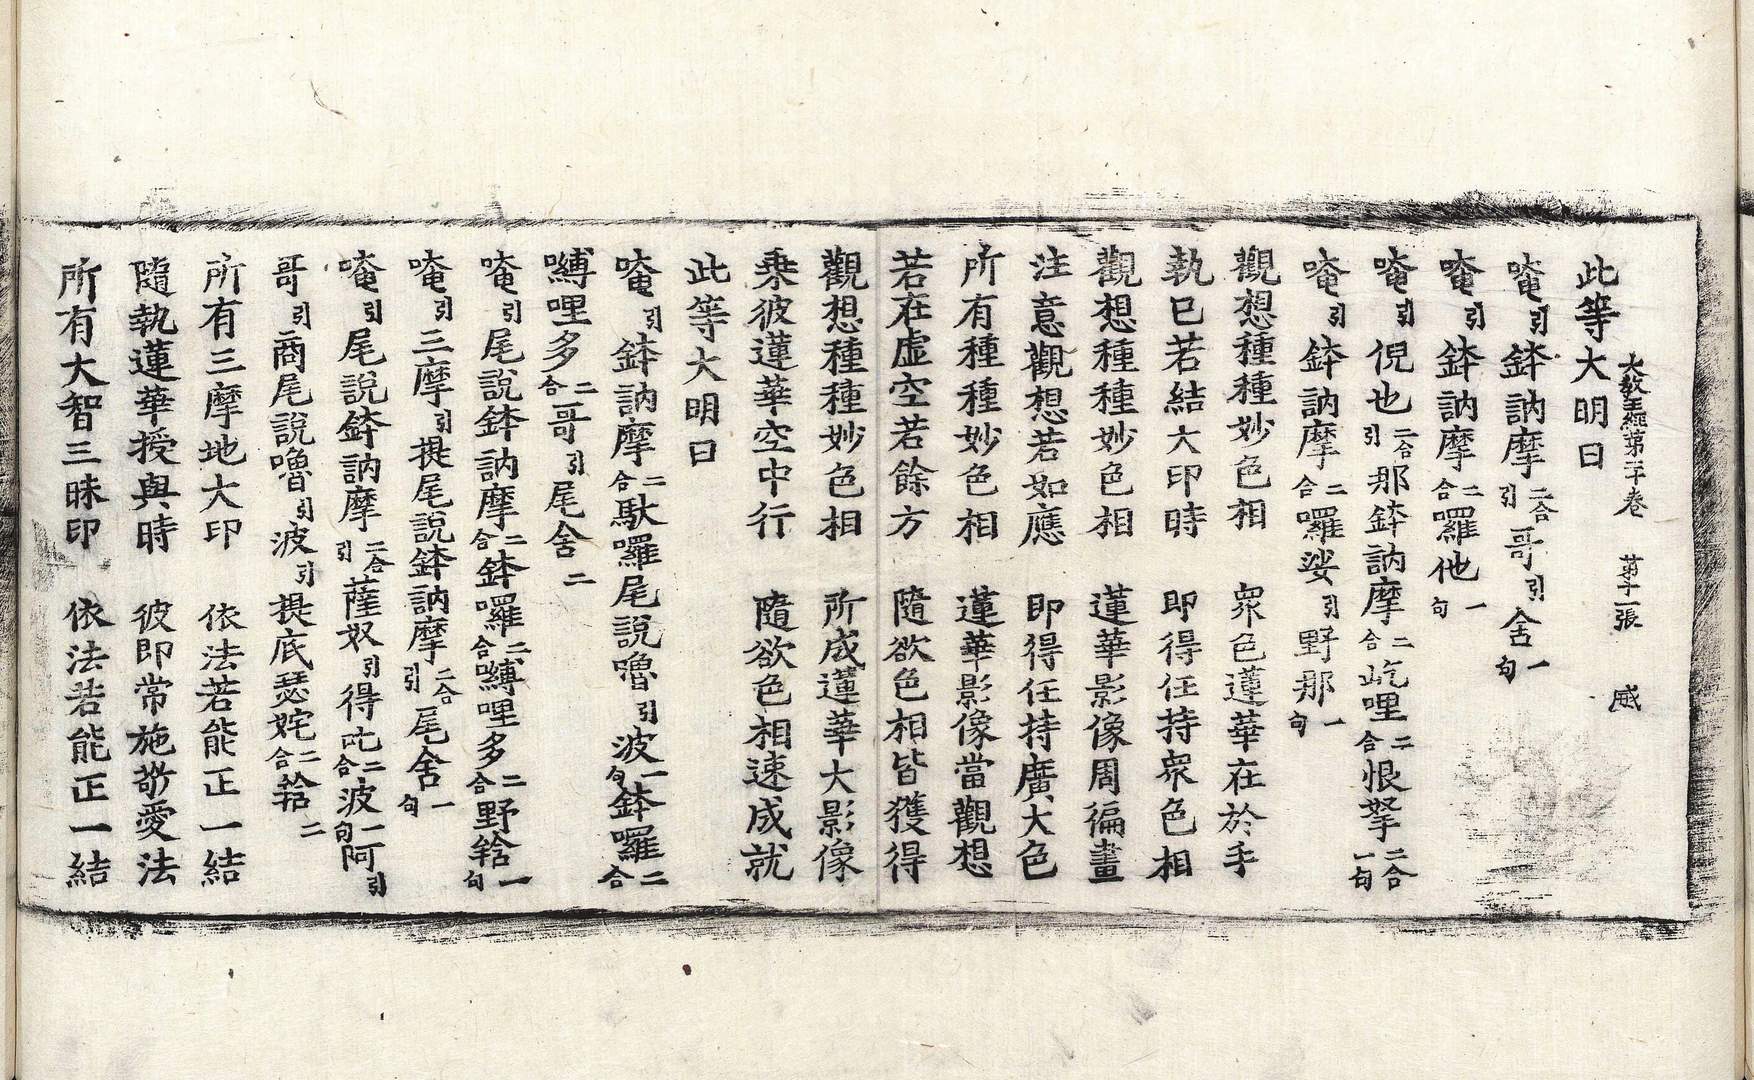 大教王經第二十卷 第十一張 威
此等大明曰
唵引鉢訥摩二合引哥引舍一句
唵引鉢訥摩二合囉他一句
唵引倪也二合引那鉢訥摩二合屹哩二合恨拏二合一句
唵引鉢訥摩二合囉娑引野那一句
觀想種種妙色相 衆色蓮華在於手
執已若結大印時 即得任持衆色相
觀想種種妙色相 蓮華影像周徧畫
注意觀想若如應 即得任持廣大色
所有種種妙色相 蓮華影像當觀想
若在虛空若餘方 隨欲色相皆獲得
觀想種種妙色相 所成蓮華大影像
乘彼蓮華空中行 隨欲色相速成就
此等大明曰
唵引鉢訥摩二合馱囉尾說嚕引波一句鉢囉二合
嚩哩多二合哥引尾舍二
唵引尾說鉢訥摩二合鉢囉二合嚩哩多二合野𤚥一句
唵引三摩引提尾說鉢訥摩二合引尾舍一句
唵引尾說鉢訥摩二合引薩奴引得訖二合波一句阿引
哥引商尾說嚕引波引提底瑟姹二合𤚥二
所有三摩地大印 依法若能正一結
隨執蓮華授與時 彼即常施敬愛法
所有大智三昧印 依法若能正一結